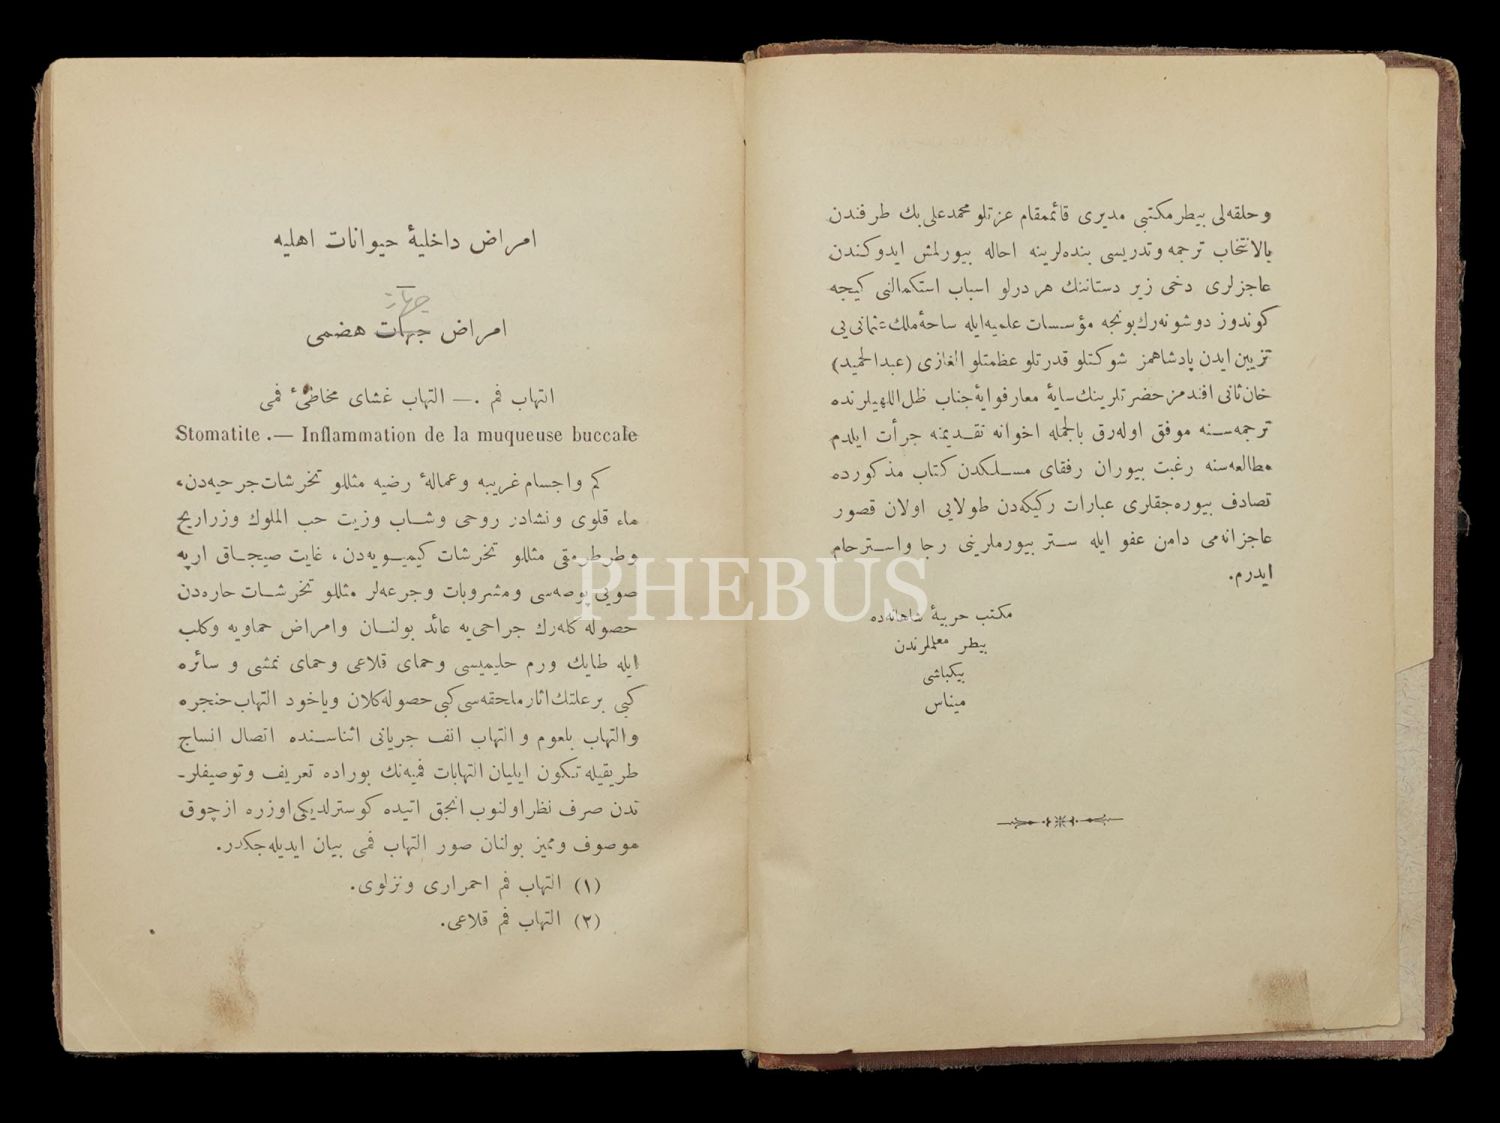 وحلقه‌لی بیطر مکتبی مدیری قائممقام عزتلو محمدعلی بك طرفندن
بالانتخاب ترجمه وتدریسی بنده‌لرینه احاله بیورلمش ایدوکندن
عاجزلری دخی زیر دستاننك هردرلو اسباب استکمالنی کیجه
کوندوز دوشونه‌رك بونجه مؤسسات علمیه ایله ساحۀ ملك عثمانی یی
تزیین ایدن پادشاهمز شوکتلو قدرتلو عظمتلو الغازی (عبدالحمید)
خان ثانی افندمز حضرتلرینك سایۀ معارفوایۀ جناب ظل‌اللهیلرنده
ترجمه‌سنه موفق اوله‌رق بالجمله اخوانه تقدیمنه جرأت ایلدم
مطالعه‌سنه رغبت بیوران رفقای مسلکدن کتاب مذکورده
تصادف بیوره‌جقلری عبارات رکیکه‌دن طولایی اولان قصور
عاجزانه‌می دامن عفو ایله ستر بیورملرینی رجا واسترحام
ایدرم.
مکتب حربیۀ شاهانه‌ده
بیطر معلملرندن
بیکباشی
میناس
امراض داخلیۀ حیوانات اهلیه
جهاز
امراض جهات هضمی
التهاب فم .— التهاب غشای مخاطیٔ فمی
Stomatite .— Inflammation de la muqueuse buccale
کم واجسام غریبه وعمالۀ رضیه مثللو تخرشات جرحیه‌دن،
ماء قلوی ونشادر روحی وشاب وزیت حب الملوك وزراریح
وطرطرمقی مثللو تخرشات کیمیویه‌دن، غایت صیجاق ارپه
صویی پوصه‌سی ومشروبات وجرعه‌لر مثللو تخرشات حاره‌دن
حصوله کله‌رك جراحی‌یه عائد بولنان وامراض حماویه وکلب
ایله طایك ورم حلیمیسی وحمای قلاعی وحمای نمشی و سائره
کبی بر علتك اثار ملحقه‌سی کبی حصوله کلان ویاخود التهاب حنجره
والتهاب بلعوم والتهاب انف جریانی اثناسنده اتصال انساج
طریقیله تکون ایلیان التهابات فمیه‌نك بوراده تعریف وتوصیفلر-
ندن صرف نظر اولنوب انجق اتیده کوسترلدیکی اوزره ازچوق
موصوف وممیز بولنان صور التهاب فمی بیان ایدیله‌جکدر.
(۱) التهاب فم احمراری ونزلوی.
(۲) التهاب فم قلاعی.
PHEBUS